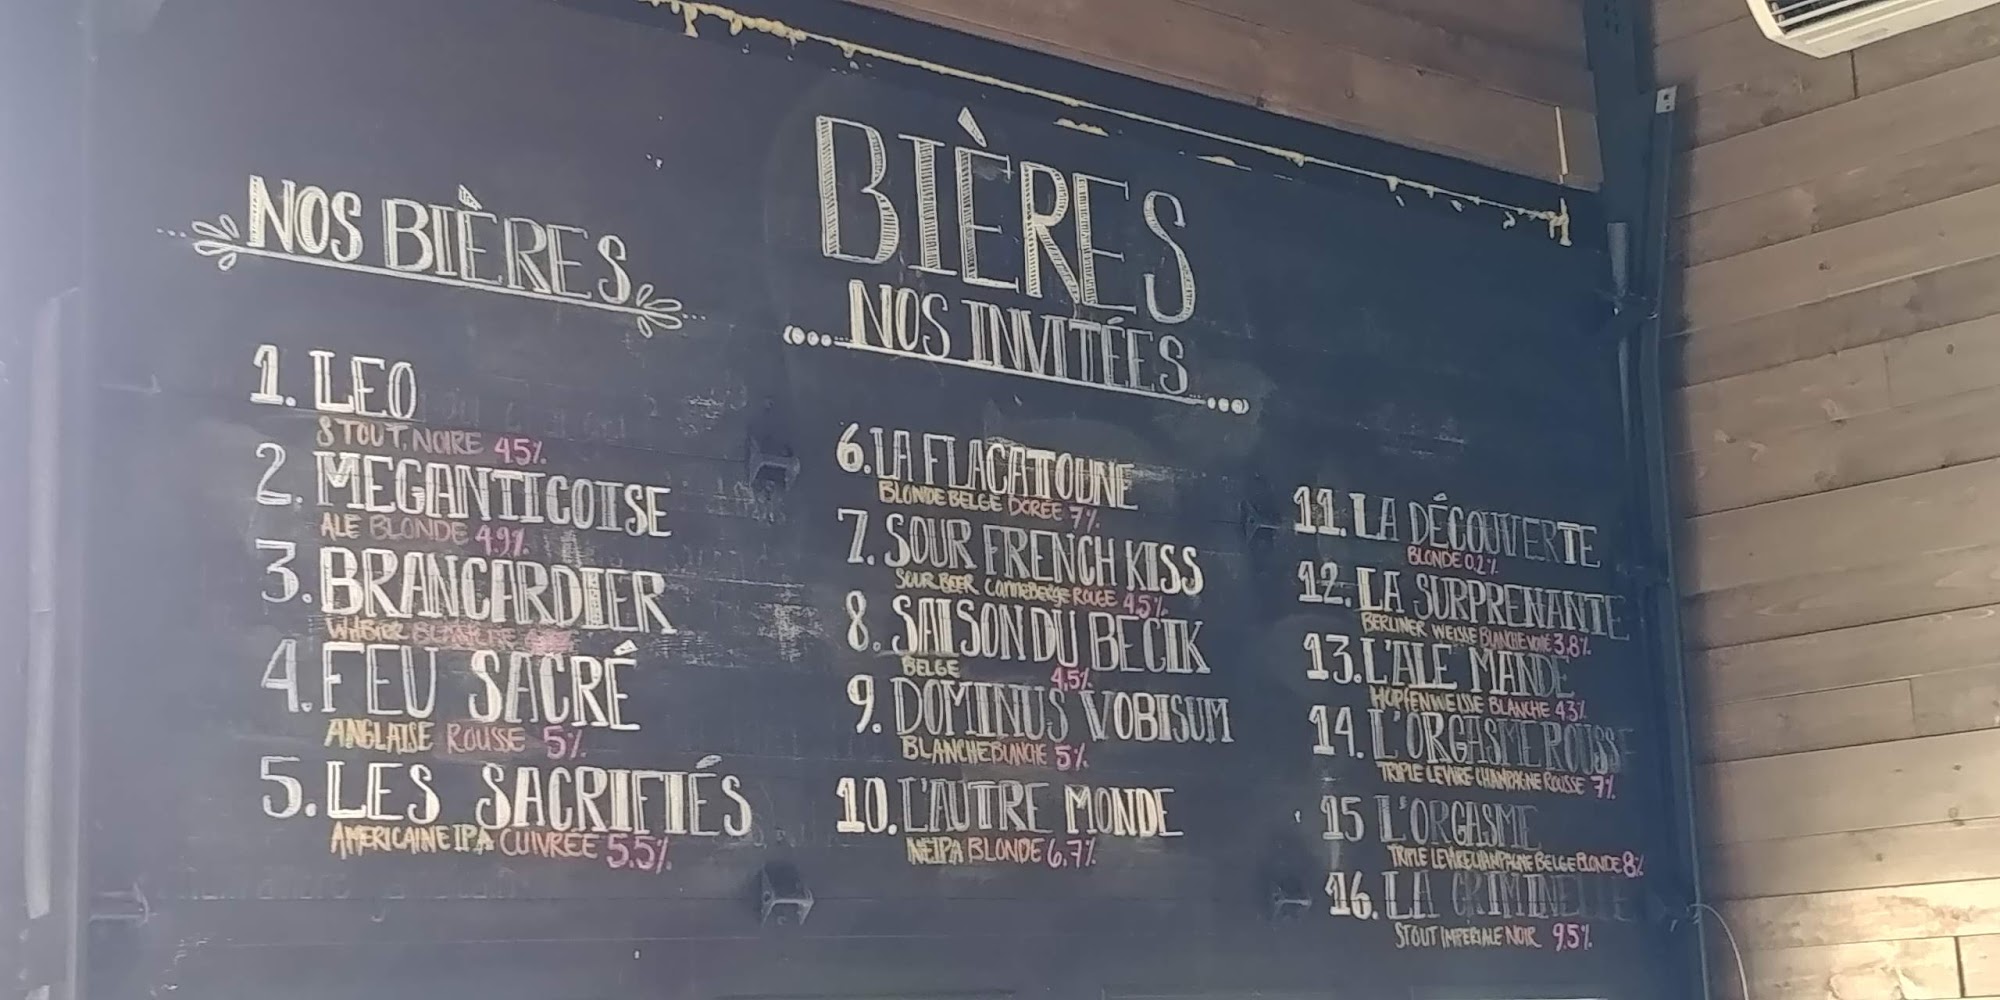 NOS BIÈRES
1. LEO
STOUT, NOIRE 4.5%
2. MEGANTICOISE
ALE BLONDE 4.9%
3. BRANCARDIER
4. FEU SACRÉ
ANGLAISE ROUSSE 5%
5. LES SACRIFIÉS
AMERICAINE IPA CUIVRÉE 5.5%
BIÈRES
NOS INVITÉES
6. LA FLACATOUNE
BLONDE BELGE DORÉE 7%
7. SOUR FRENCH KISS
SOUR BEER CANNEBERGE ROUGE 4.5%
8. SAISON DU BECIK
BELGE 4,5%
9. DOMINUS VOBISUM
BLANCHE BLANCHE 5%
10. L'AUTRE MONDE
NEIPA BLONDE 6.7%
11. LA DÉCOUVERTE
BLONDE 0.2%
12. LA SURPRENANTE
BERLINER WEISSE BLANCHE 3,8%
13. L'ALE MANDE
HOPFENWEISSE BLANCHE 4.3%
14. L'ORGASME ROUSSE
TRIPLE LEVURE CHAMPAGNE ROUSSE 7%
15 L'ORGASME
TRIPLE LEVURE CHAMPAGNE BELGE BLONDE 8%
16. LA CRIMINELLE
STOUT IMPERIALE NOIR 9.5%